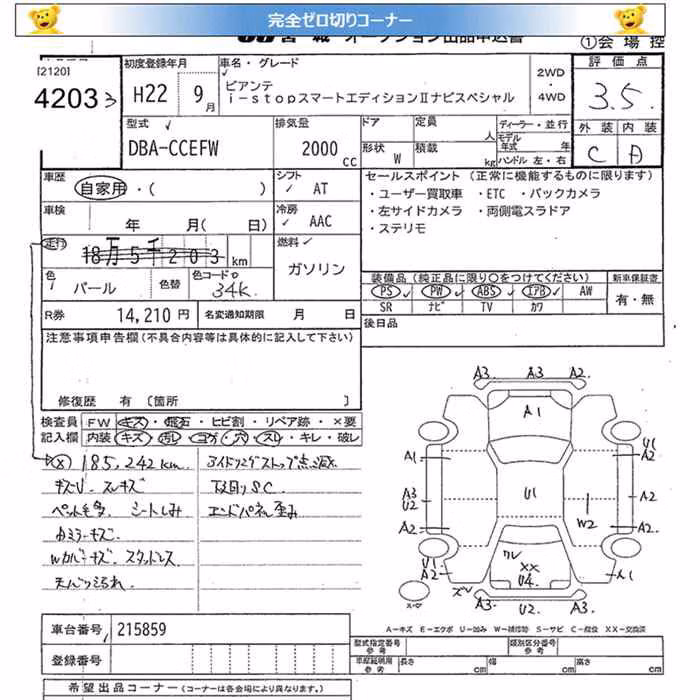 完全ゼロ切りコーナー
宮城 オークション出品申込書
①会場控
[2120]
4203
初度登録年月
H22 9月
車名・グレード
ビアンテ
i-stopスマートエディションⅡナビスペシャル
2WD
・
4WD
評価点
3.5
外装 内装
C A
型式
DBA-CCEFW
排気量
2000cc
ドア 定員 人
形状 W 積載 kg
ディーラー・並行
モデル年式 年
ハンドル 左・右
車歴
自家用・( )
シフト
AT
車検 年 月( 日)
冷房
AAC
走行
18万5千203km
燃料
ガソリン
色
パール
色替
色コードNo
34K
R券 14,210円
名変通知期限 月 日
セールスポイント(正常に機能するものに限ります)
・ユーザー買取車 ・ETC ・バックカメラ
・左サイドカメラ ・両側電スラドア
・ステリモ
装備品(純正品に限り○をつけてください)
新車保証書
PS PW ABS エアB AW
SR ナビ TV カワ
有・無
後日品
注意事項申告欄(不具合内容等は具体的に記入して下さい)
修復歴 有〔箇所 〕
検査員記入欄
FW キズ・飛石・ヒビ割・リペア跡・×要
内装 キズ・汚レ・コゲ・穴・スレ・キレ・破レ
185,242km アイドリングストップ点滅
キズU スレキズ 下回りSC
ペット毛多 シートしみ エンドパネル歪み
カミラーキズ
Wカバーキズ スタッドレス
天バリよごれ
A3 A3 A2
A1
U1
A2
A1
A3
U2
U1
A2
W2
A2
A2
U1
A2
ワレ
XX
U4
A1
スペア
A3 U2 A3
A―キズ E―エクボ U―凹み W―補修跡 S―サビ C―腐食 XX―交換済
車台番号 215859
登録番号
型式指定番号 参考
類別区分番号 参考
車庫証明用 参考
長さ cm
幅 cm
高さ cm
希望出品コーナー(コーナーは各会場により異なります。)